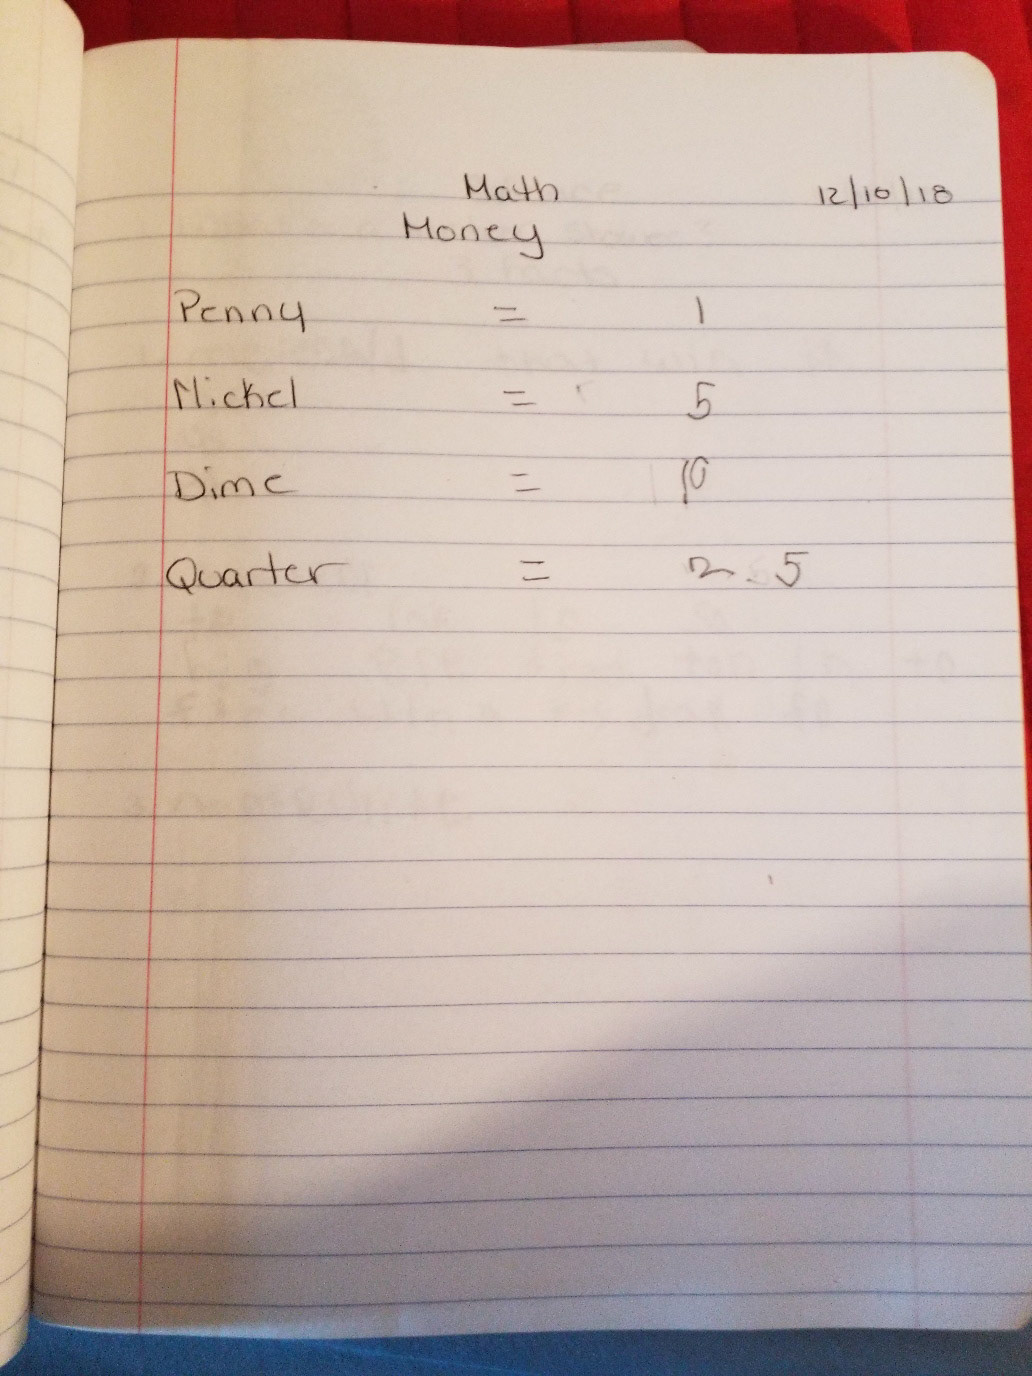 Math 12/10/18
Money
Penny = 1
Nickel = 5
Dime = 10
Quarter = 2.5